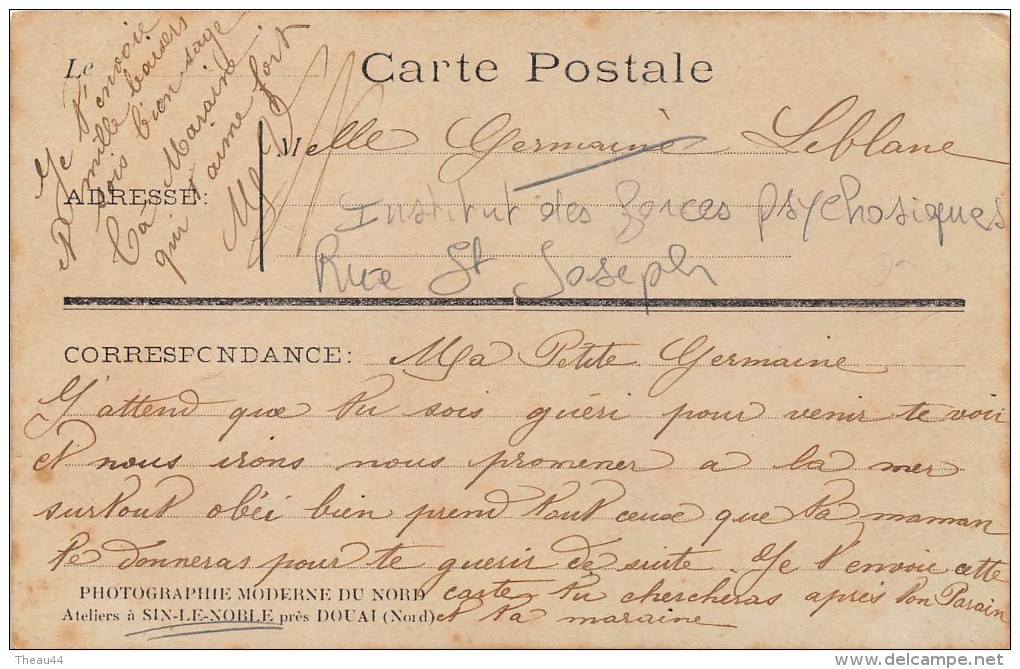 Carte Postale
Le
Je t'envoie
mille baisers
et sois bien sage
ta Maraine
qui t'aime fort
Melle Germaine Leblanc
ADRESSE:
Institut des forces psychosiques
Rue St Joseph
CORRESPONDANCE: Ma Petite Germaine
J'attend que tu sois guéri pour venir te voir
et nous irons nous promener a la mer
surtout obéi bien prend tout ceux que ta maman
te donneras pour te guerir de suite. Je t'envoie cette
carte tu chercheras après ton Parain
et ta maraine
PHOTOGRAPHIE MODERNE DU NORD
Ateliers à SIN-LE-NOBLE près DOUAI (Nord)
Theau44